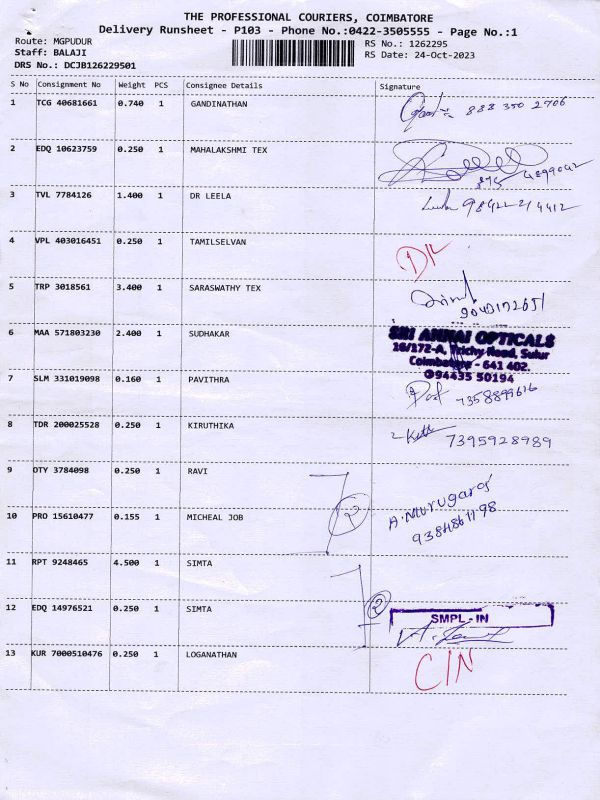 THE PROFESSIONAL COURIERS, COIMBATORE
Delivery Runsheet - P103 - Phone No.:0422-3505555 - Page No.:1
Route: MGPUDUR RS No.: 1262295
Staff: BALAJI RS Date: 24-Oct-2023
DRS No.: DCJB126229501
S No Consignment No Weight PCS Consignee Details Signature
1 TCG 40681661 0.740 1 GANDINATHAN 883 350 2706
2 EDQ 10623759 0.250 1 MAHALAKSHMI TEX
3 TVL 7784126 1.400 1 DR LEELA
4 VPL 403016451 0.250 1 TAMILSELVAN
5 TRP 3018561 3.400 1 SARASWATHY TEX
6 MAA 571803230 2.400 1 SUDHAKAR
SRI ANNAI OPTICALS
16/172-A, Trichy Road, Sulur
Coimbatore - 641 402.
94435 50194
7 SLM 331019098 0.160 1 PAVITHRA
8 TDR 200025528 0.250 1 KIRUTHIKA 7395928989
9 OTY 3784098 0.250 1 RAVI
10 PRO 15610477 0.155 1 MICHEAL JOB 2
11 RPT 9248465 4.500 1 SIMTA
12 EDQ 14976521 0.250 1 SIMTA 2 SMPL - IN
13 KUR 7000510476 0.250 1 LOGANATHAN C/N